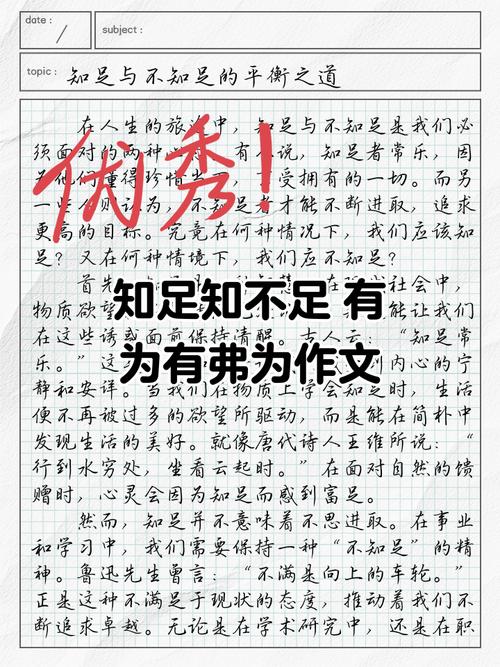 date :
subject :
topic : 知足与不知足的平衡之道
在人生的旅中，知足与不知足是我们必
须面对的两种有人说，知足者常乐，因
他们懂得珍惜当下，享受拥有的一切。而另
一些人则认为，不知足者才能不断进取，追求
更高的目标。究竟在何种情况下，我们应该知
足？又在何种情境下，我们应不知足？
优秀！
首先社会中，
物质欲望能让我们
在这些诱惑面前保持清醒。古人云：“知足常
乐。”这到内心的宁
静和安详。当我们在物质上学会知足时，生活
知足知不足 有
为有弗为作文
便不再被过多的欲望所驱动，而是能在简朴中
发现生活的美好。就像唐代诗人王维所说：“
行到水穷处，坐看云起时。”在面对自然的馈
赠时，心灵会因为知足而感到富足。
然而，知足并不意味着不思进取。在事业
和学习中，我们需要保持一种“不知足”的精
神。鲁迅先生曾言：“不满是向上的车轮。”
正是这种不满足于现状的态度，推动着我们不
断追求卓越。无论是在学术研究中，还是在职